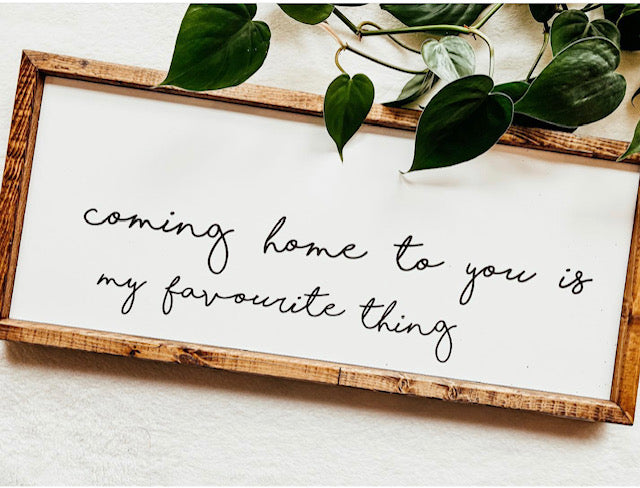 coming home to you is
my favourite thing